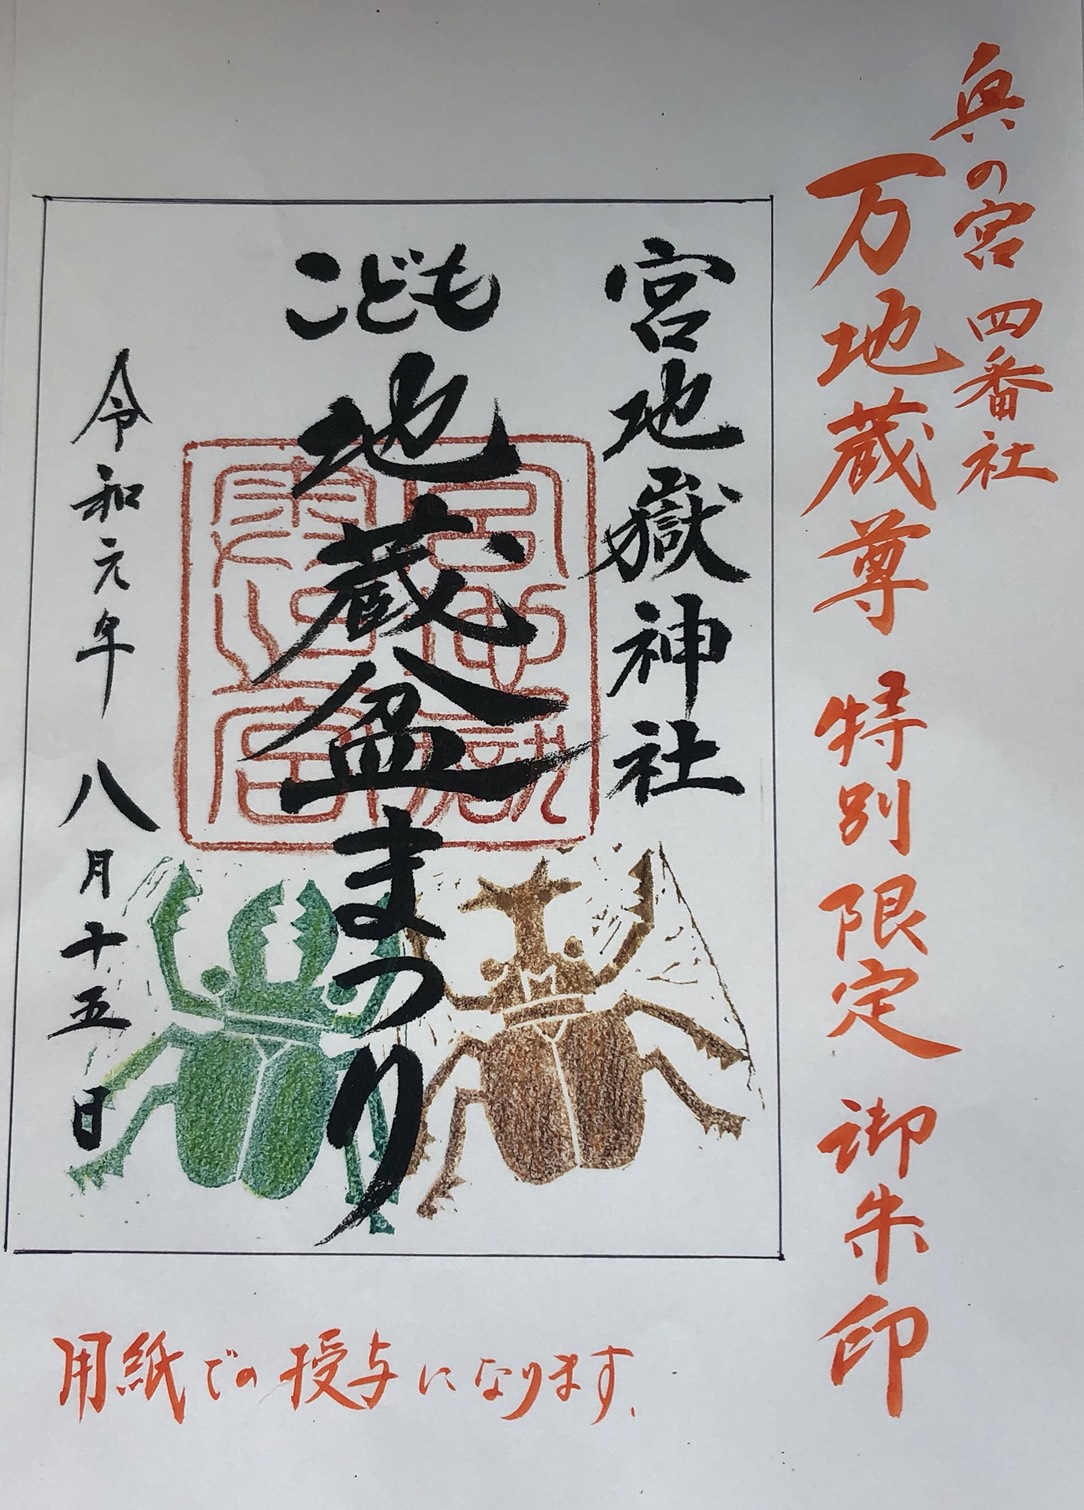 奥の宮 四番社
万地蔵尊 特別限定 御朱印
宮地嶽神社
こども
地蔵盆まつり
令和元年 八月十五日
用紙での授与になります。